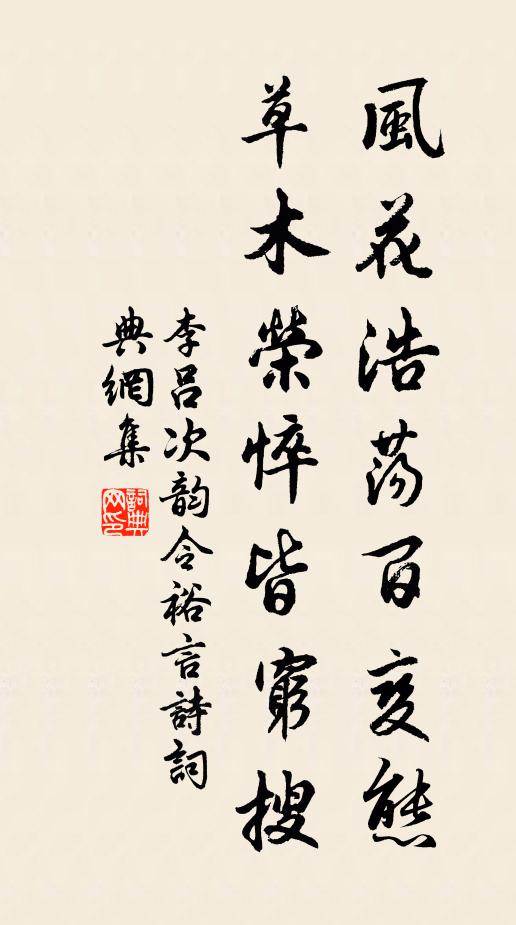 風花浩蕩百変態
草木榮悴皆窮搜
李呂次韵令裕言詩詞
典網集
詞典網印